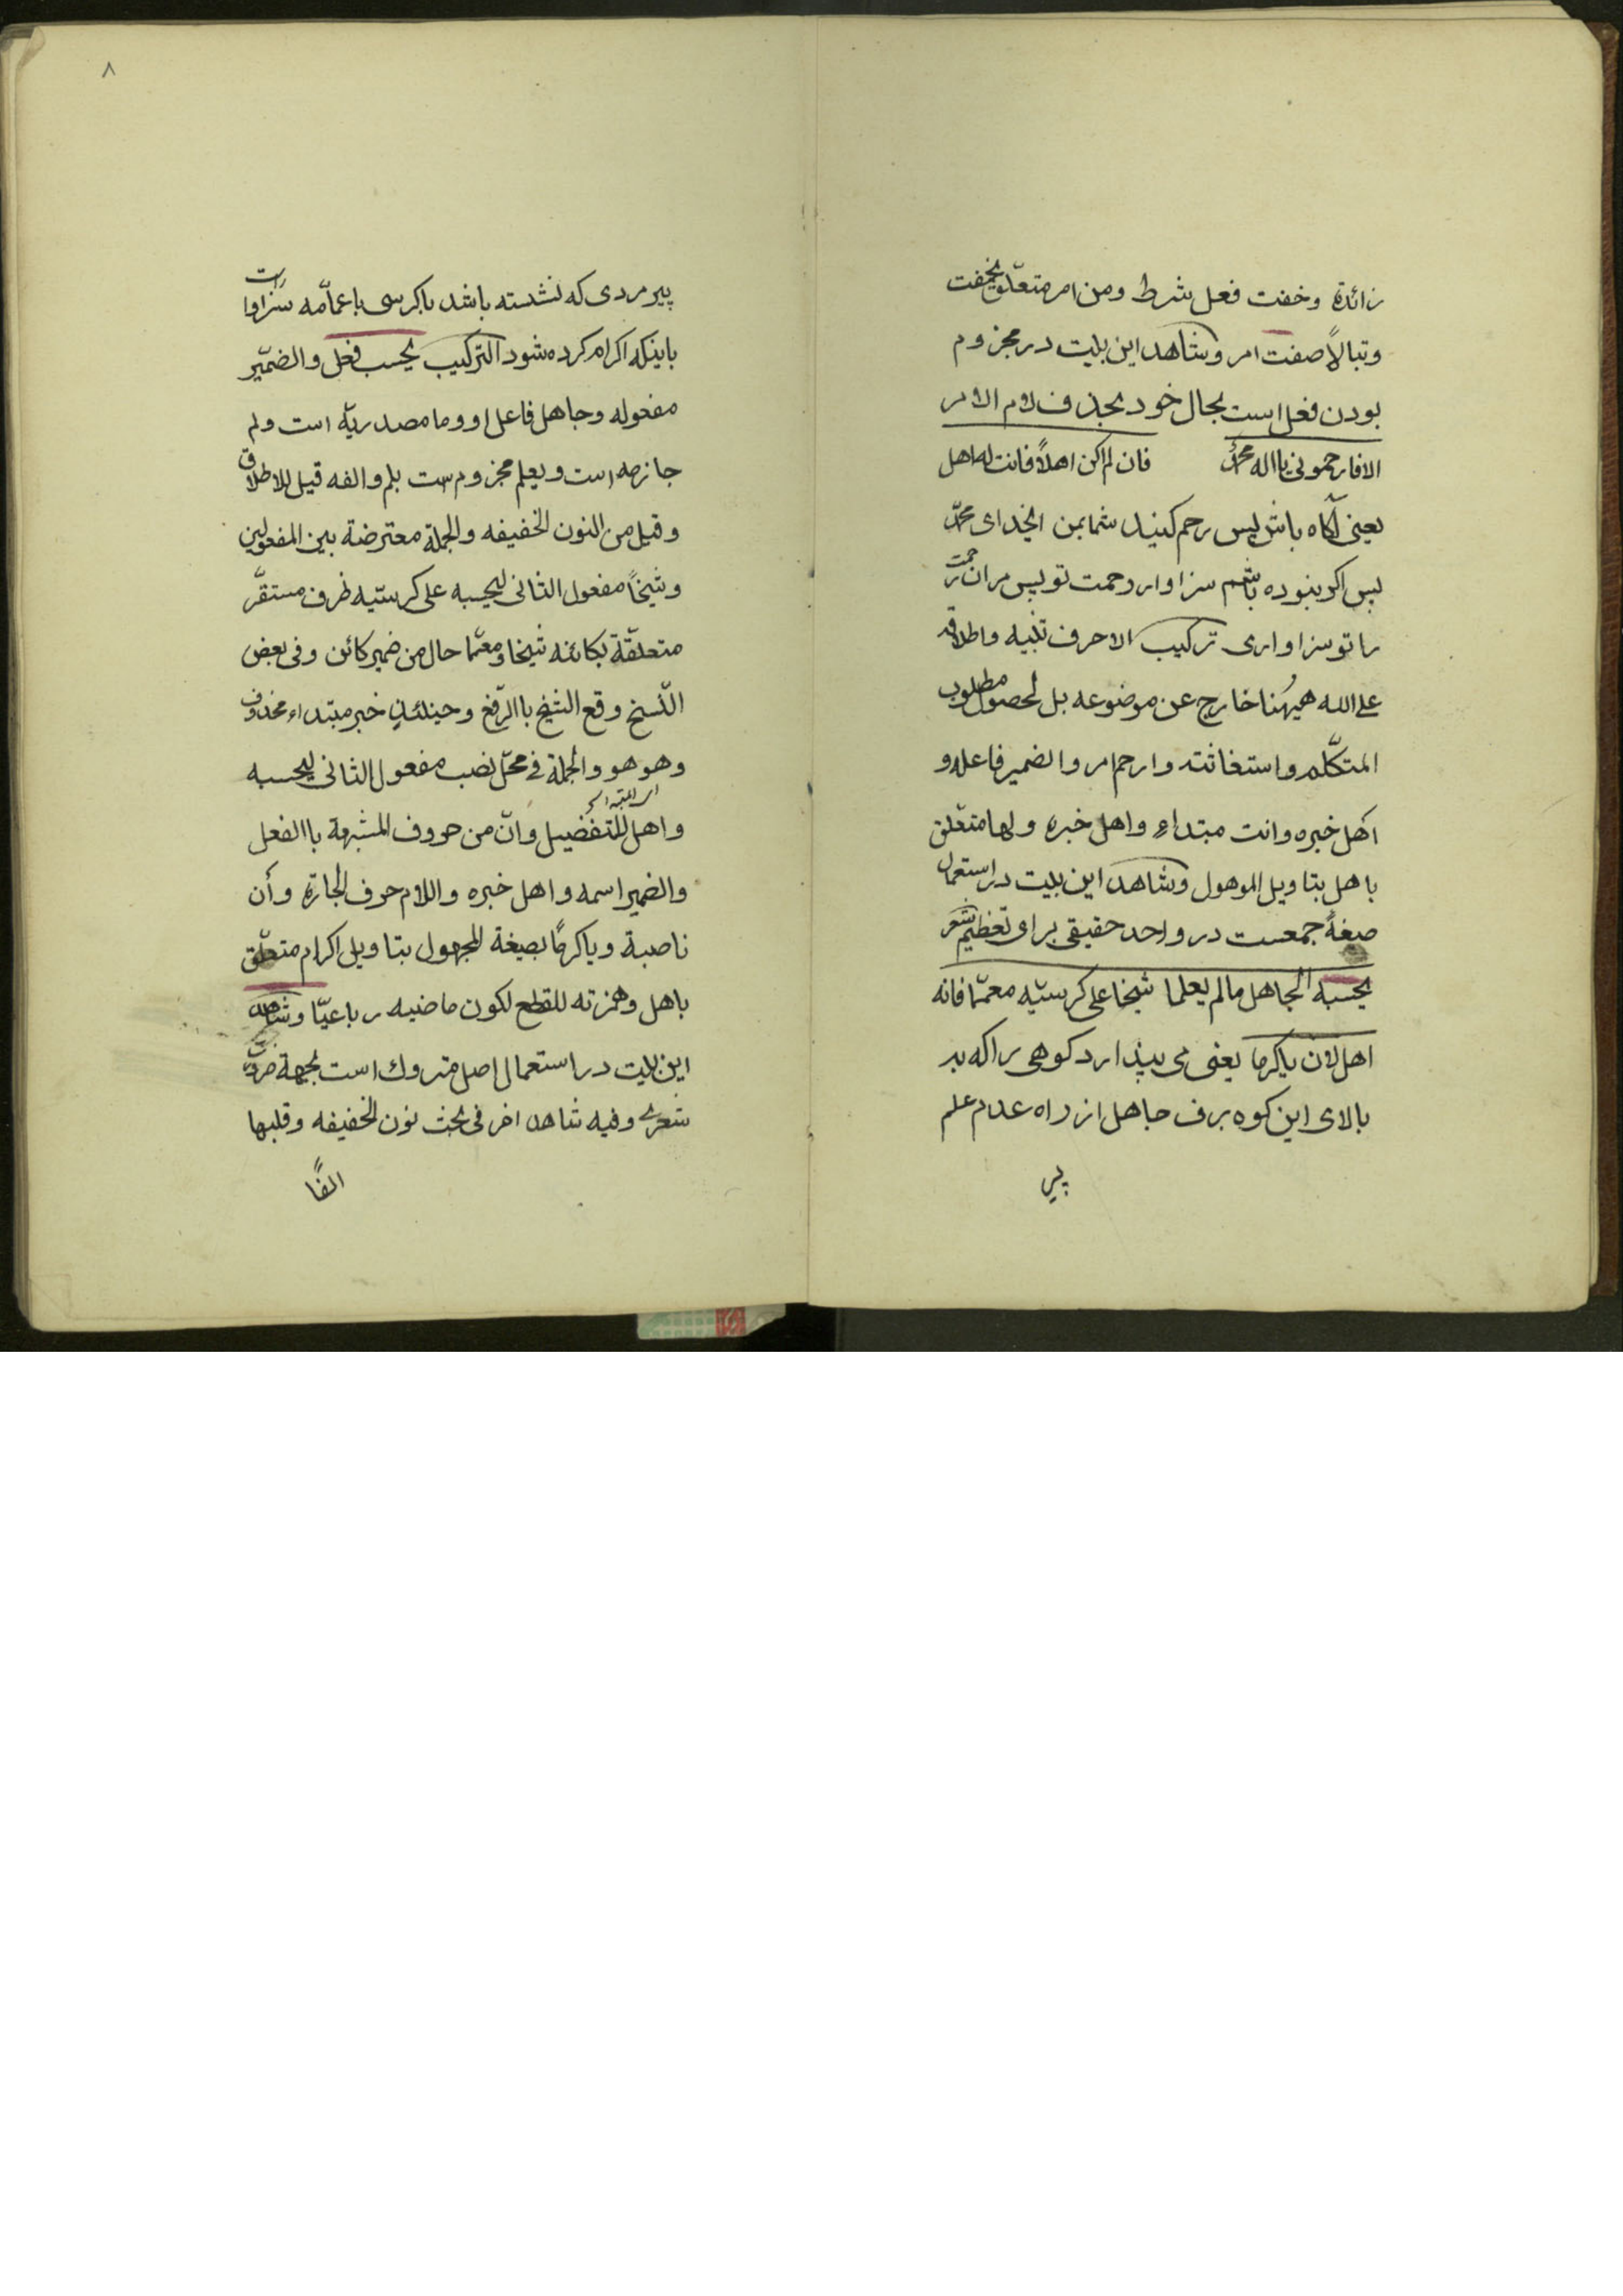 زائدة وخفت فعل شرط ومن امر متعلق بخفت
وتبالاً صفت امر وشاهد این بیت در مجزوم
بودن فعل است بحال خود بحذف لام الامر
الا فارحمونی یا اله محمّد فان لم اکن اهلاً فانت له اهل
یعنی آکاه باش پس رحم کنید شما بمن ایخدای محمّد
پس اکر نبوده باشم سزاوار رحمت تو پس مر ان رحمت
را تو سزاواری ترکیب الا حرف تنبیه واطلاقه
علی الله هیهنا خارج عن موضوعه بل لحصول مطلوب
المتکلّم واستغاثته وارحم امر والضمیر فاعله و
اهل خبره وانت مبتداء واهل خبره ولها متعلق
باهل بتاویل الموهول وشاهد این بیت در استعمال
صیغهٔ جمعست در واحد حقیقی برای تعظیم شعر
یحسبه الجاهل مالم یعلما شیخا على کرسیّه معمّما فانه
اهل لان یاکرما یعنی می پندارد کوهی را که بر
بالای این کوه برف جاهل از راه عدم علم
پیر
۸
پیر مردی که نشسته باشد باکرسی باعمامّه سزاوار است
باینکه اکرام کرده شود الترکیب یحسب فعل والضمیر
مفعوله وجاهل فاعل او وما مصدریّه است ولم
جازمه است ویعلم مجزوم ست بلم والفه قیل للاطلاق
وقیل من النون الخفیفه والجملة معترضة بین المفعولین
وشیخاً مفعول الثانی لیحسبه علی کرسیّه ظرف مستقرّ
متعلقة بکائنه شیخا ومعمّما حال من ضمیر کائن وفی بعض
النّسخ وقع الشیخ باالرّفع وحینئذٍ خبر مبتداء محذوف
وهو هو والجملة فی محلّ نصب مفعول الثانی لیحسبه
واهل للتفضیل وانّ من حروف المشبهة باالفعل
والضمیر اسمه واهل خبره واللام حرف الجارّة وأن
ناصبة ویاکرمًا بصیغة المجهول بتاویل اکرام متعلّق
باهل وهمزته للقطع لکون ماضیه رباعیّا وشاهد
این بیت در استعمال اصل متروك است بجهة ضرورت
شعری وفیه شاهد اخر فی بحث نون الخفیفه وقلبها
الفًا